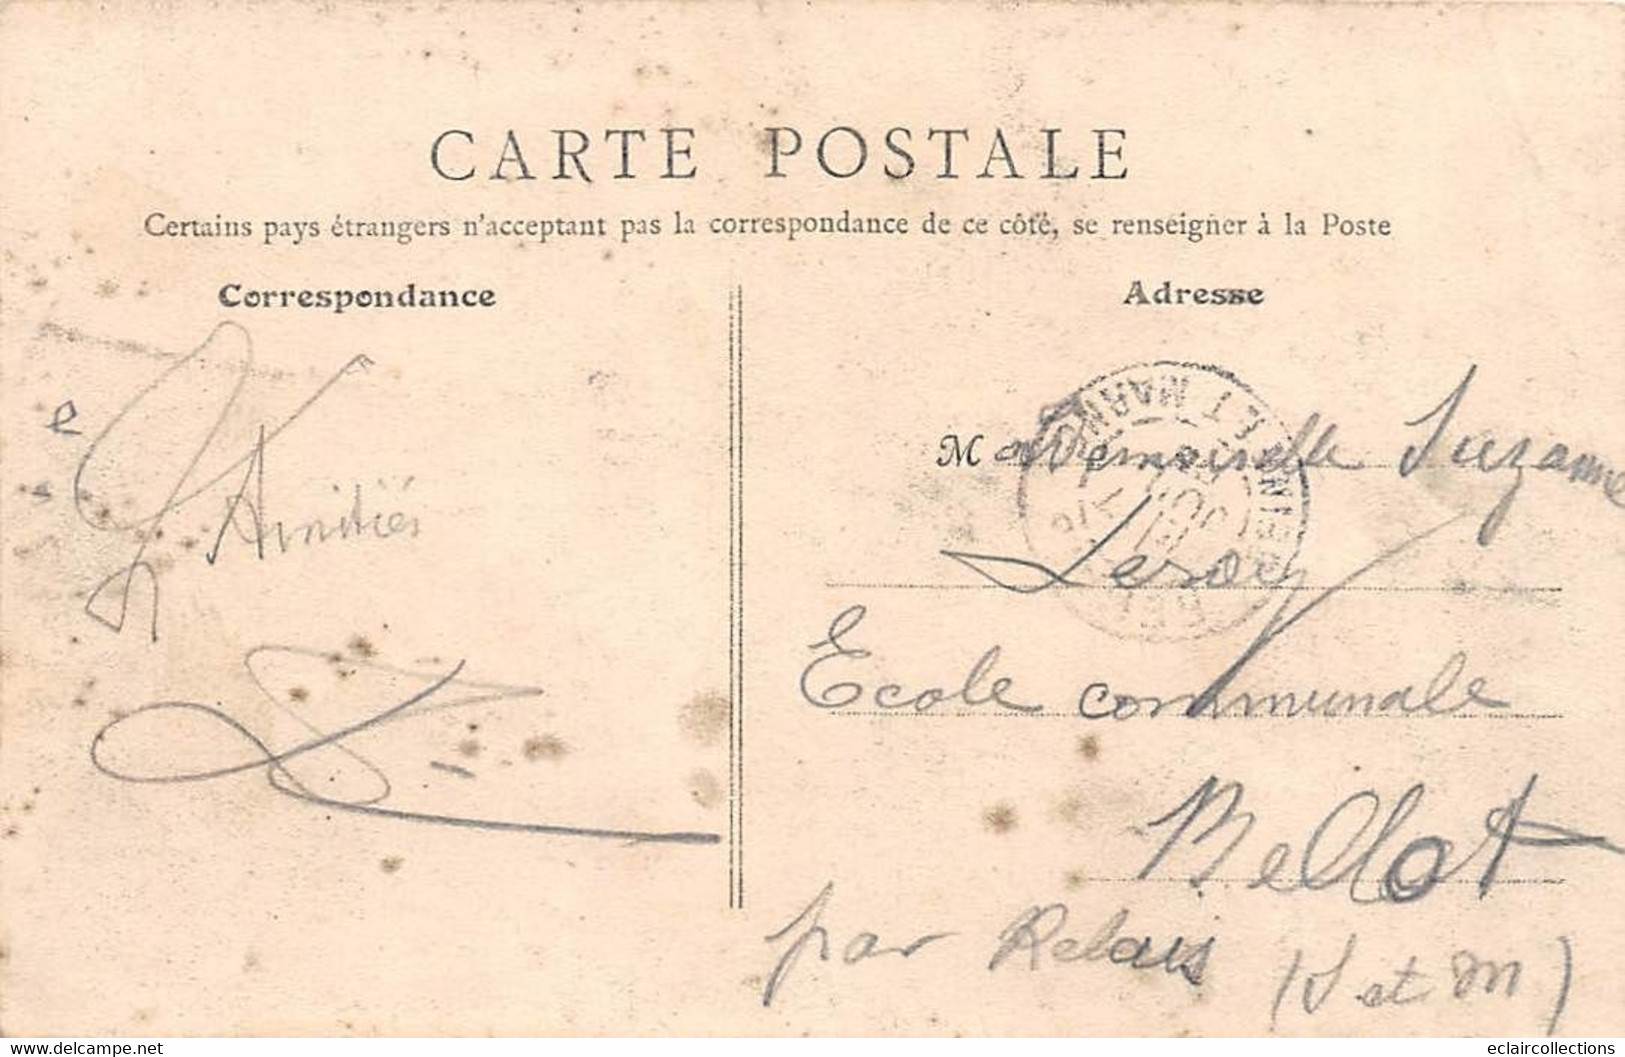 CARTE POSTALE
Certains pays étrangers n'acceptant pas la correspondance de ce côté, se renseigner à la Poste
Correspondance
Adresse
Amitiés
Mademoiselle Suzanne
Leroy
Ecole communale
Bellot
par Rebais (S et M)
SEINE ET MARNE
delcampe.net
eclaircollections